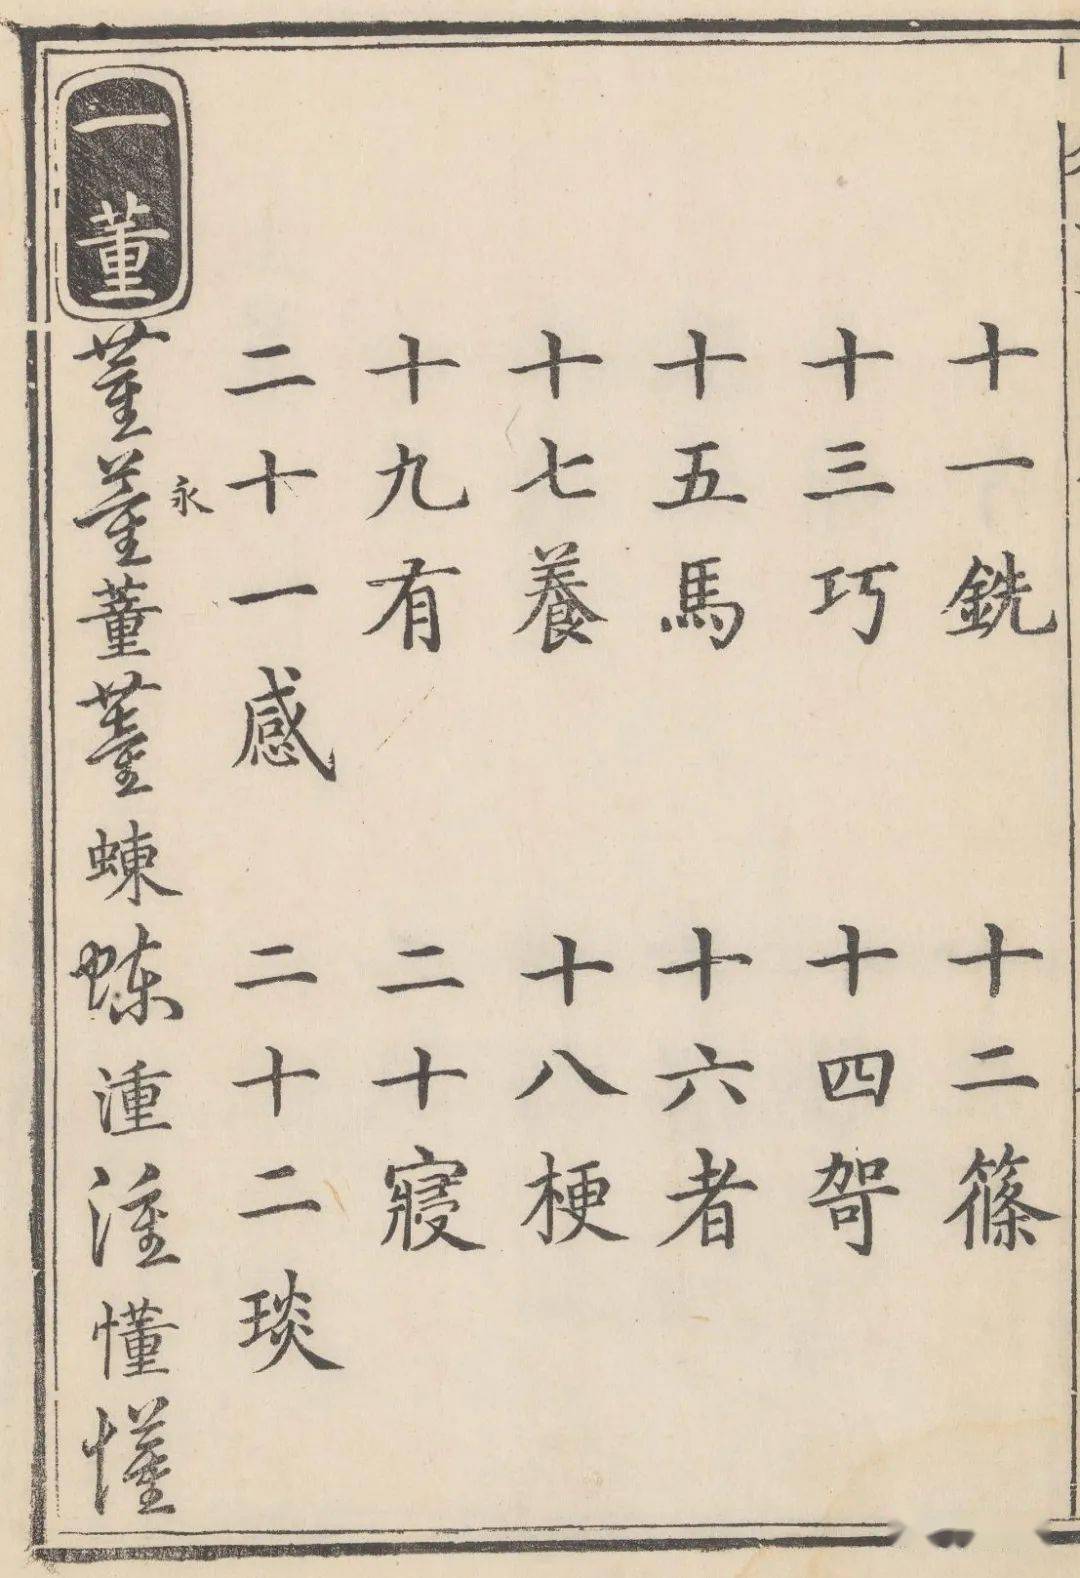 十一銑 十二篠
十三巧 十四哿
十五馬 十六者
十七養 十八梗
十九有 二十寢
二十一感 二十二琰
一董 董董董董蝀蝀湩湩懂懂
永